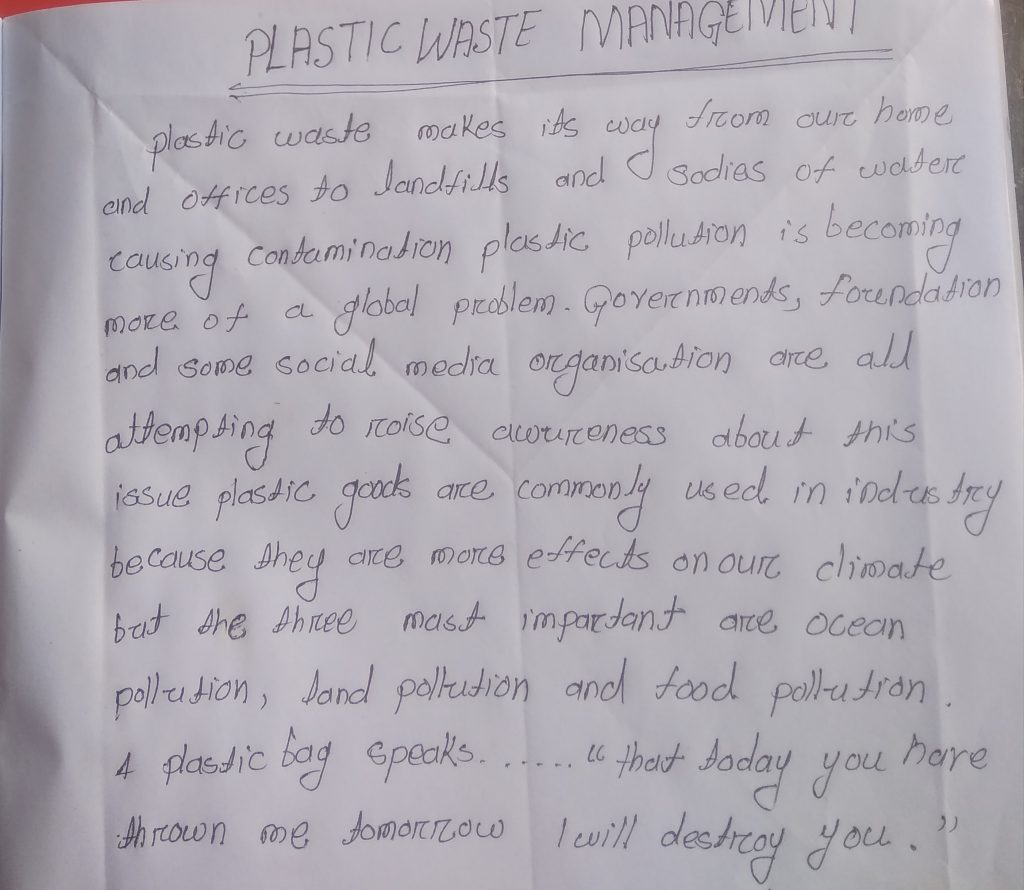 PLASTIC WASTE MANAGEMENT
plastic waste makes its way from our home
and offices to landfills and sodies of water
causing contamination plastic pollution is becoming
more of a global problem. Governments, foundation
and some social media organisation are all
attempting to raise awareness about this
issue plastic goods are commonly used in industry
because they are more effects on our climate
but the three most important are ocean
pollution, land pollution and food pollution.
A plastic bag speaks. ..... "that today you have
thrown me tomorrow I will destroy you."